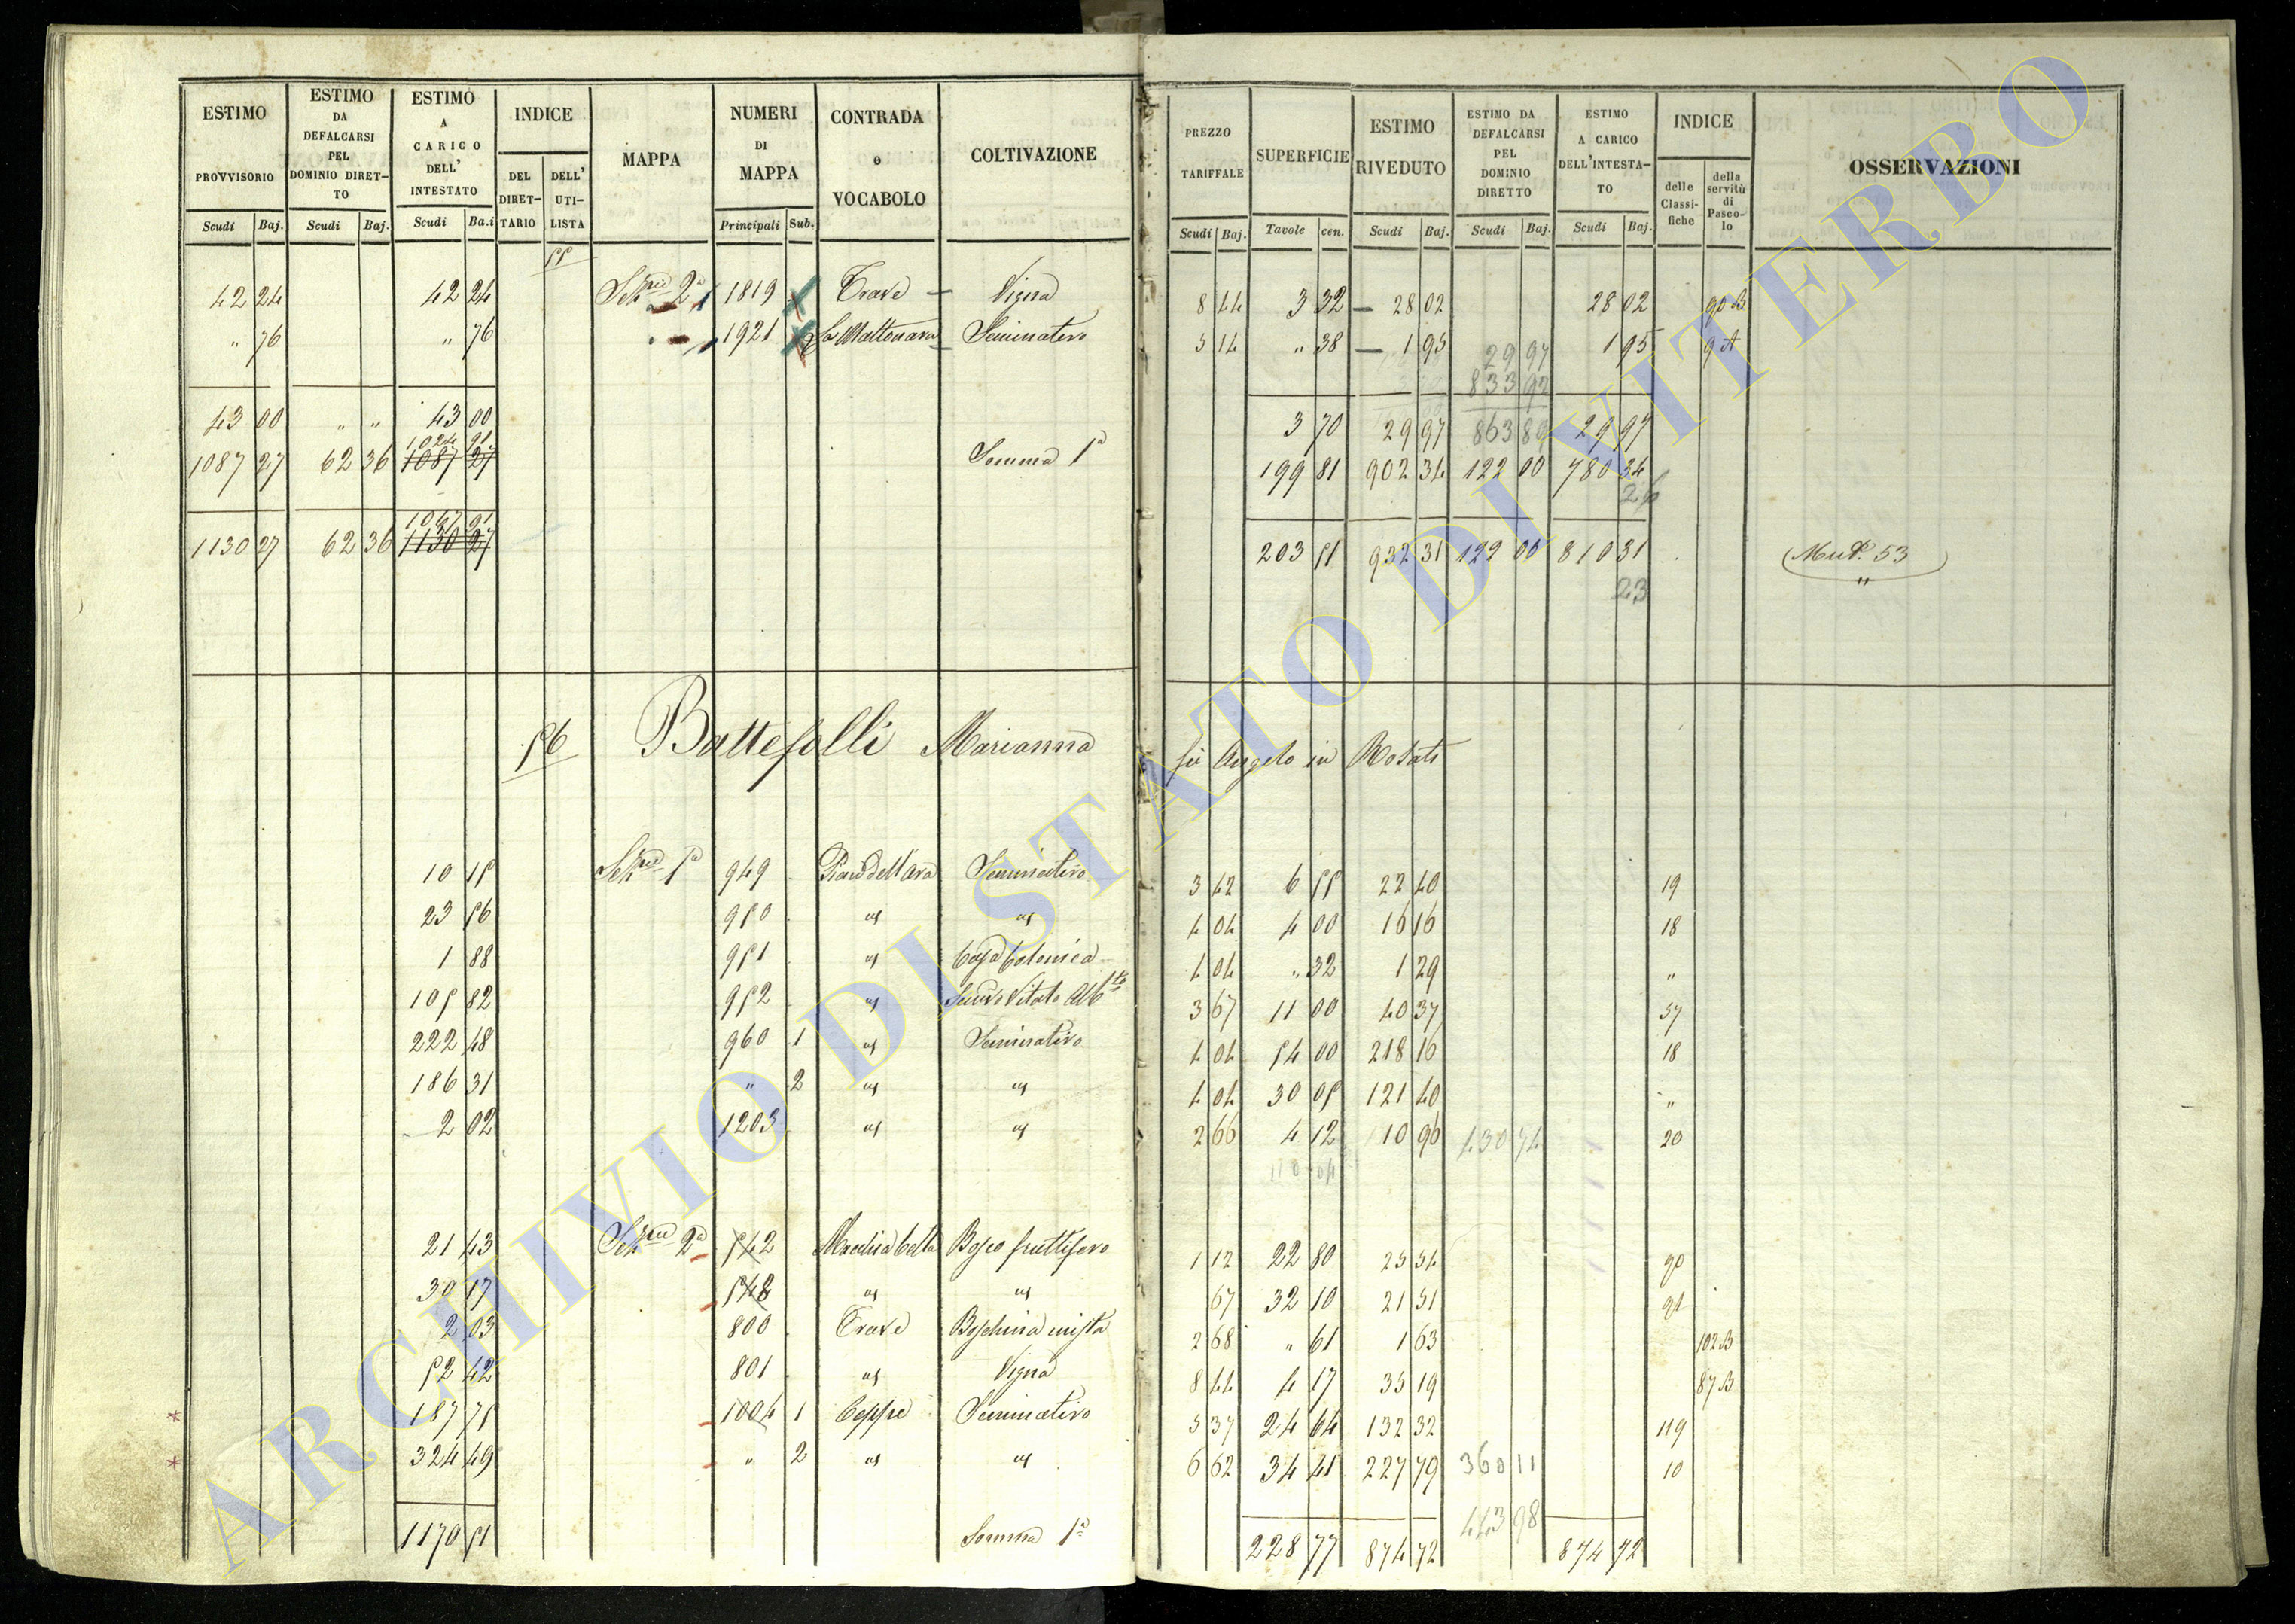 ESTIMO PROVVISORIO Scudi Baj. | ESTIMO DA DEFALCARSI PEL DOMINIO DIRETTO Scudi Baj. | ESTIMO A CARICO DELL' INTESTATO Scudi Ba.i | INDICE DEL DIRETTARIO DELL' UTILISTA | MAPPA | NUMERI DI MAPPA Principali Sub. | CONTRADA o VOCABOLO | COLTIVAZIONE | PREZZO TARIFFALE Scudi Baj. | SUPERFICIE Tavole cen. | ESTIMO RIVEDUTO Scudi Baj. | ESTIMO DA DEFALCARSI PEL DOMINIO DIRETTO Scudi Baj. | ESTIMO A CARICO DELL'INTESTATO Scudi Baj. | INDICE delle Classifiche della servitù di Pascolo | OSSERVAZIONI
55
42 24 42 24 Sez.ne 2a 1819 Trave Vigna 8 44 3 32 28 02 28 02 90 B
" 76 " 76 1921 La Mattonara Seminativo 5 14 " 38 1 95 29 97 1 95 9 A
833 92
43 00 " " 43 00 3 70 29 97 863 89 29 97
1024 91
1087 27 62 36 1087 27 Somma 1a 199 81 902 34 122 00 780 34
26
1067 91
1130 27 62 36 1130 27 203 51 932 31 122 00 810 31 Mut. 53
23 "
56 Battefolli Marianna fù Angelo in Rosati
10 15 Sez.ne 1a 949 Piano dell'Ara Seminativo 3 42 6 55 22 40 19
23 56 950 " " 4 04 4 00 16 16 18
1 88 951 " Casa Colonica 4 04 " 32 1 29 "
105 82 952 " Semvo Vitato Albto 3 67 11 00 40 37 57
222 48 960 1 " Seminativo 4 04 54 00 218 16 18
186 31 " 2 " " 4 04 30 05 121 40 "
2 02 1203 " " 2 66 4 12 10 96 430 74 20
110 04
21 43 Sez.ne 2a 542 Macchia Cotta Bosco fruttifero 1 12 22 80 25 54 90
30 17 548 " " 67 32 10 21 51 91
2 03 800 Trave Boschina mista 2 68 " 61 1 63 102 B
52 42 801 " Vigna 8 44 4 17 35 19 87 B
* 187 75 1004 1 Ceppe Seminativo 5 37 24 64 132 32 119
* 324 49 " 2 " " 6 62 34 41 227 79 360 11 10
443 98
1170 51 Somma 1a 228 77 874 72 874 72
ARCHIVIO DI STATO DI VITERBO